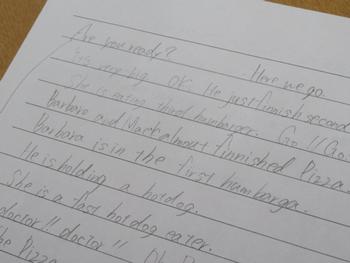 Are you ready? Here we go.
It's very big. OK. He just finnish second
She is eating third hamburger. Go!! Go
Barbara and almost finnished Pizza.
Barbara is in the first hambarga.
He is holding a hotdog.
She is a fast hotdog eater.
doctor!! doctor!! Oh
the Pizza